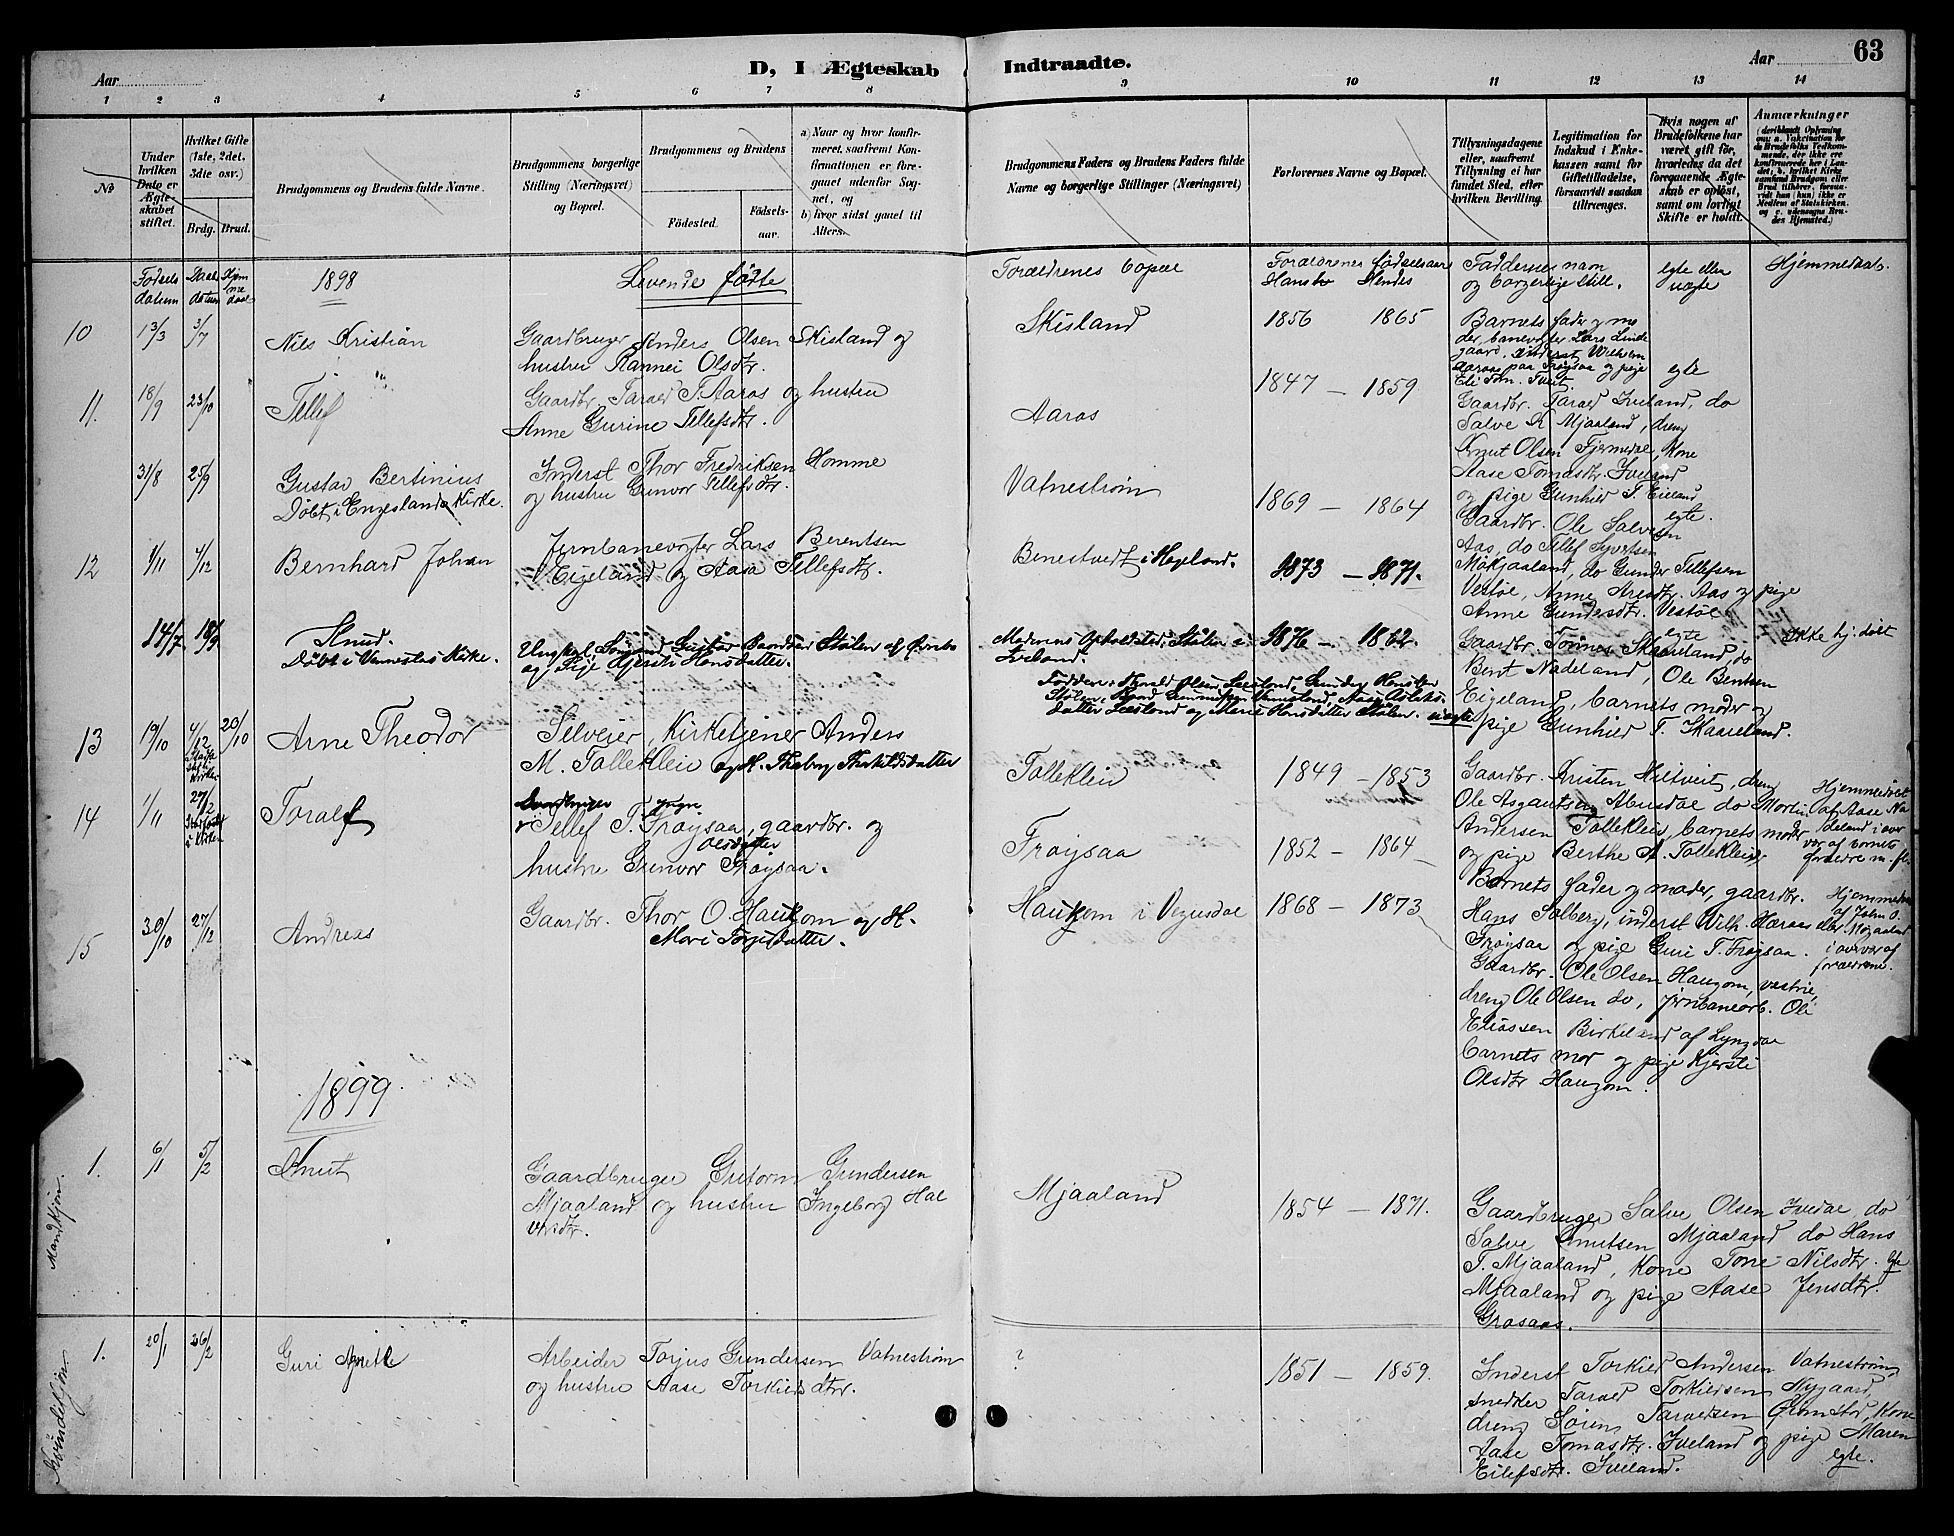 Aar
D, I Ægteskab
Indtraadte.
Aar
63
1 2 3 4 5 6 7 8 9 10 11 12 13 14
No
Under hvilken Dato er Ægteskabet stiftet.
Hvilket Gifte (1ste, 2det, 3die osv.)
Brdg. Brud.
Brudgommens og Brudens fulde Navne.
Brudgommens borgerlige Stilling (Næringsvei) og Bopæl.
Brudgommens og Brudens
Fødested.
Fødselsaar.
a) Naar og hvor konfirmeret, saafremt Konfirmationen er foregaaet udenfor Sognet, og
b) hvor sidst gaaet til Alters.
Brudgommens Faders og Brudens Faders fulde Navne og borgerlige Stillinger (Næringsvei)
Forlovernes Navne og Bopæl.
Tillysningsdagene eller, saafremt Tillysning ei har fundet Sted, efter hvilken Bevilling.
Legitimation for Indskud i Enkekassen samt for Giftetilladelse, forsaavidt saadan tiltrænges.
Hvis nogen af Brudefolkene har været gift før, hvorledes da det foregaaende Ægteskab er opløst, samt om lovligt Skifte er holdt.
Anmærkninger
Fødsels datum
Daabs datum
Hjemmedaab
1898
Levende fødte
Forældrenes bopæl
Forældrenes fødselsaar
Hans Hendes
Faddernes navn
og borgerlige still.
egte eller
uegte
Hjemmedaab.
10 13/3 3/7 Nils Kristian
Gaardbruger Anders Olsen Skisland og
hustru Rannei Olsdtr.
Skisland
1856 1865
Barnets fader og mo
der, banevogter Lars Linde
gaard, inderst Wilhelm
Aaraas paa Frøysaa og pige
Eli Tom. Tveit.
egte
11. 18/9 23/10 Tellef
Gaardbr. Tarald T. Aaras og hustru
Anne Gurine Tellefsdtr.
Aaras
1847 — 1859
Gaardbr. Tarald Iveland, do
Salve K Mjaaland, dreng
Knut Olsen Fjermedal, Kone
Aase Tomasdtr Iveland
og pige Gunhild T. Eieland
egte.
31/8 25/9 Gustav Bertinius
Døbt i Engeslands Kirke.
Inderst Thor Fredriksen Homme
og hustru Gunvor Tellefsdtr.
Vatnestrøm
1869 — 1864
Gaardbr. Ole Salvesen
Aas, do Tellef Syvertsen
12 1/11 4/12 Bernhard Johan
Jernbanevogter Lars Berentsen
Eigeland og Aasa Tellefsdtr.
Benestvedt i Hegeland.
1873 — 1871.
Møkjaaland, do Gunder Tellefsen
Vestøl, Anne Aresdtr. Aas og pige
Anne Gundersdtr. Vestøl
egte
14/7 18/9 Knud.
Døbt i Vennesla Kirke.
Ungkarl Sørend Gustav Baardsen Stølen af Øvrebø
og Pige Kjersti Hansdatter.
Moderens Opholdsted: Stølen i
Iveland.
1876 — 1862.
Ikke hj: døbt
Gaardbr. Tønnes Skaareland, do
Bent Nadeland, Ole Bentsen
Eigeland, barnets moder og
pige Gunhild T. Skaareland.
uegte
13 19/10 4/12 20/10 Arne Theodor
Selveier, Kirketjener Anders
M. Tolleklev og H. Thaborg Therkildsdatter
Tolleklev
1849 — 1853
Gaardbr. Kristen Hiltveit, dreng
Ole Asgautsen Abusdal do Morten
Andersen Tolleklev, barnets moder
og pige Berthe A. Tolleklev.
Hjemmedøbt
af Aase Na
deland i over
vær af barnets
forældre m. fl.
14 1/11 27/12 Toralf
Gaardbruger yngre
Tellef T. Frøysaa, gaardbr. og
Olsdatter
hustru Gunvor Frøysaa.
Frøysaa
1852 — 1864
Barnets fader og moder, gaardbr.
Hans Solberg, inderst Wilh. Haraas
Frøysaa og pige Guri T. Frøysaa.
Hjemmedøbt
af John O.
Mjaaland
i overvær af
forældrene.
15 30/10 27/12 Andreas
Gaardbr. Thor O. Haugom og H.
Mari Torjusdatter.
Haugom i Vegusdal
1868 — 1873
Gaardbr. Ole Olsen Haugom, vestre,
dreng Ole Olsen do, jernbanearb. Ole
Eliassen Birkeland af Lyngdal
barnets mor og pige Kjersti
Olsdtr Haugom.
1899
Mandkjøn.
1. 6/1 5/2 Knut
Gaardbruger Guttorm Gundersen
Mjaaland og hustru Ingeborg Hal
vorsdtr.
Mjaaland
1854 — 1871.
Gaardbruger Salve Olsen Ivedal, do
Salve Knutsen Mjaaland do Hans
T. Mjaaland, Kone Tone Nilsdtr. egte
Mjaaland og pige Aase Jensdtr.
Grosaas.
Kvindekjøn
1. 20/1 26/2 Guri Agnette
Arbeider Torjus Gundersen Vatnestrøm
og hustru Aase Torkildsdtr.
?
1851 — 1859.
Inderst Torkild Andersen Vatnestrøm
snedker Tarald Torkildsen Nygaard,
dreng Søren Taraldsen Grimstad, Kone
Aase Tomasdtr. Iveland og pige Maren
Eilefsdtr. Iveland.
egte.